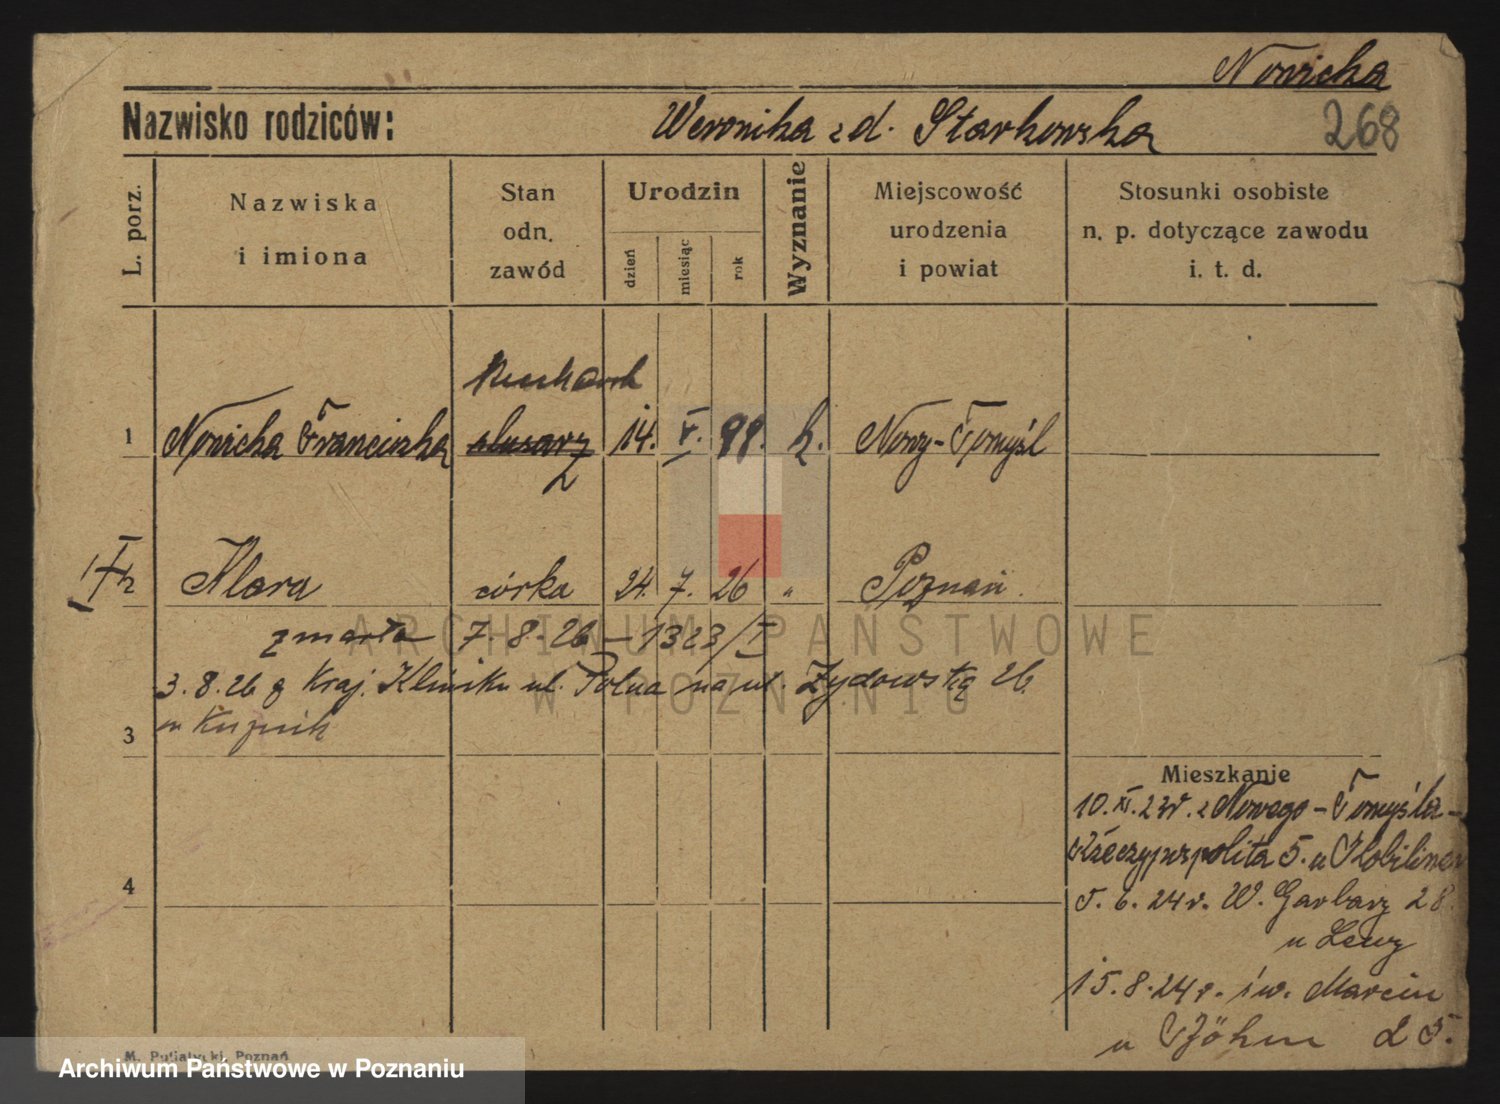 Nowicka
Nazwisko rodziców:
Weronika z d. Starkowska
268
L. porz.
Nazwiska
i imiona
Stan
odn.
zawód
Urodzin
dzień
miesiąc
rok
Wyznanie
Miejscowość
urodzenia
i powiat
Stosunki osobiste
n. p. dotyczące zawodu
i. t. d.
1
Nowicka Franciszka
slusarz
14. V. 99. k.
Nowy-Tomyśl
Klara
córka
24. 7. 26 "
Poznań.
zmarła 7. 8. 26 – 1323/I
3. 8. 26 z Kraj. Kliniki ul. Polna na ul. Żydowską 26
3
u Kuźnik
4
Mieszkanie
10. XI. 23r. z Nowego-Tomyśla-
5. u
5. 6. 24r. W. Garbary 28.
u
15. 8. 24r. św. Marcin
u Böhm 25.
M. Putiatycki, Poznań
ARCHIWUM PAŃSTWOWE
W POZNANIU
Archiwum Państwowe w Poznaniu